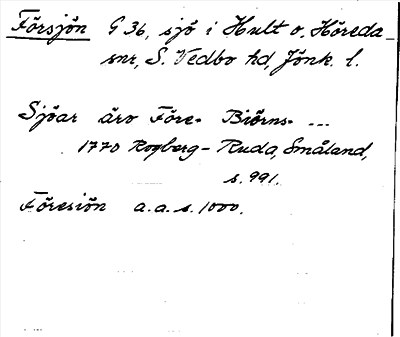 Försjön G 36, sjö i Hult o. Höreda
snr, S. Vedbo hd, Jönk. l.
Sjöar äro Före- Biörns- ...
1770 Rogberg-Ruda, Småland,
s. 991.
Föresiön a.a.s. 1000.